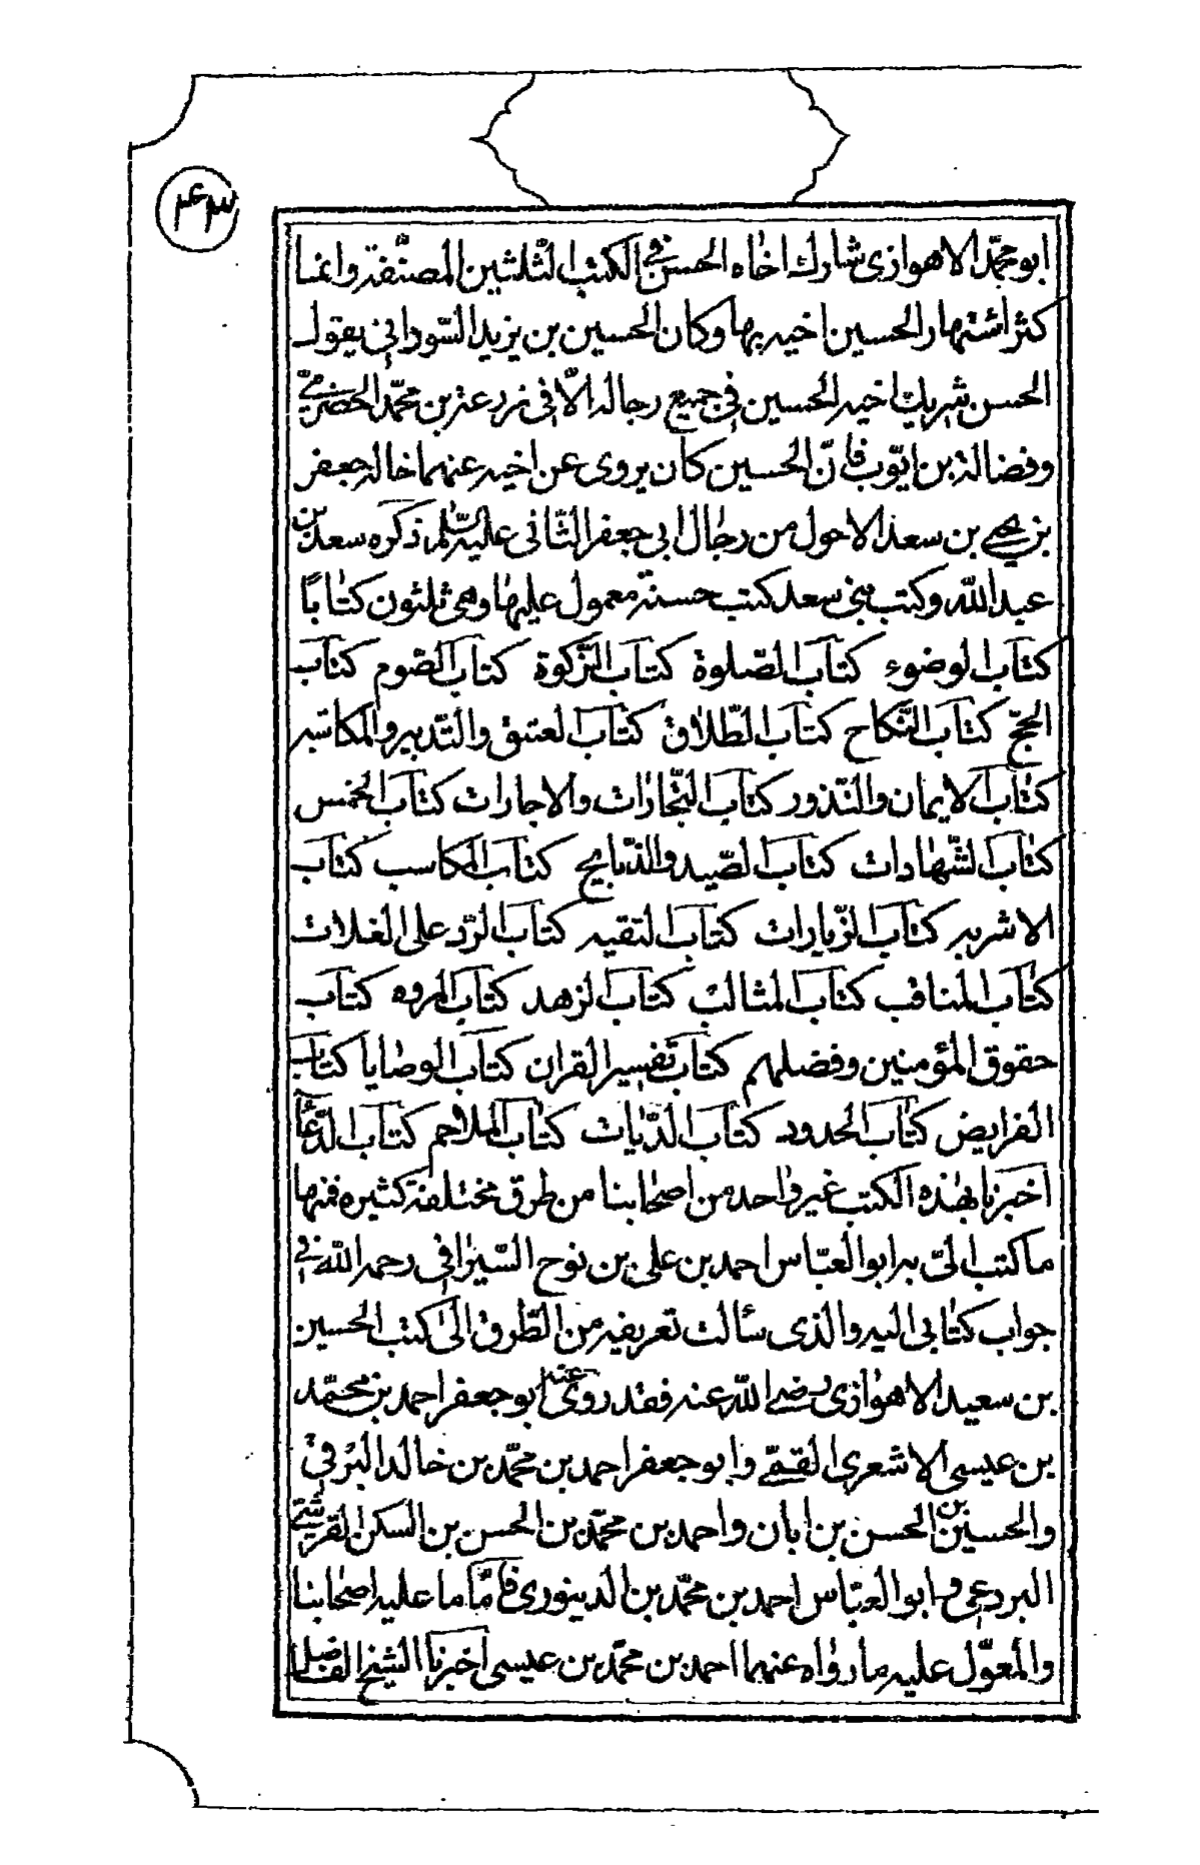 ۴۳
ابو محمّد الاهوازى شارك اخاه الحسن فى الكتب الثّلثين المصنّفة وانما
كثر اشتهار الحسين اخيه بها وكان الحسين بن يزيد السّورانى يقول
الحسن شريك اخيه الحسين فى جميع رجاله الّا فى زرعة بن محمّد الحضرمّى
وفضالة بن ايّوب فانّ الحسين كان يروى عن اخيه عنهما خاله جعفر
بن يحيى بن سعد الاحول من رجال ابى جعفر الثّانى عليه السّلم ذكره سعد بن
عبد اللّه وكتب بنى سعد كتب حسنة معمول عليها وهى ثلثون كتابًا
كتاب الوضوء كتاب الصّلوة كتاب الزّكوة كتاب الصّوم كتاب
الحجّ كتاب النّكاح كتاب الطّلاق كتاب العتق والتّدبير والمكاتبه
كتاب الايمان والنّذور كتاب التّجارات والاجارات كتاب الخمس
كتاب الشّهادات كتاب الصّيد والذّبايح كتاب المكاسب كتاب
الاشربه كتاب الزّيارات كتاب التقيه كتاب الرّد على الغلات
كتاب المناقب كتاب المثالب كتاب الزهد كتاب المروه كتاب
حقوق المؤمنين وفضلهم كتاب تفسير القران كتاب الوصايا كتاب
الفرايض كتاب الحدود كتاب الدّيات كتاب الملاحم كتاب الدّعا
اخبرنا بهذه الكتب غير واحد من اصحابنا من طرق مختلفة كثيره فمنها
ما كتب الىّ به ابو العبّاس احمد بن على بن نوح السّيرافى رحمه اللّه فى
جواب كتابى اليه والذى سألت تعريفه من الطّرق الى كتب الحسين
بن سعيد الاهوازى رضى اللّه عنه فقد روى عنه ابو جعفر احمد بن محمّد
بن عيسى الاشعرى القمّى وابو جعفر احمد بن محمّد بن خالد البرقى
والحسين بن الحسن بن ابان واحمد بن محمّد بن الحسن بن السكن القرشى
البردعى وابو العبّاس احمد بن محمّد بن الدينورى فامّا ما عليه اصحابنا
والمعوّل عليه ما رواه عنهما احمد بن محمّد بن عيسى اخبرنا الشيخ الفاضل